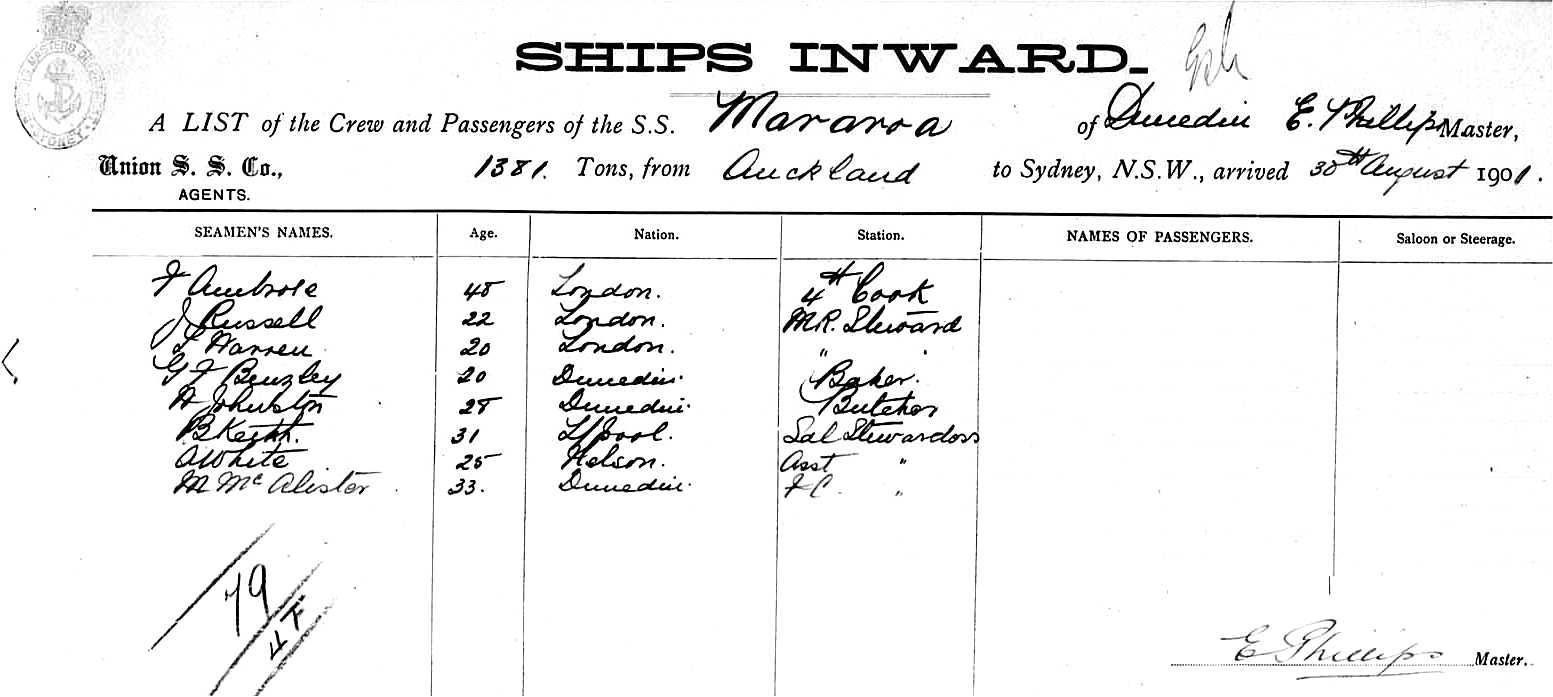 SHIPS INWARD.
A LIST of the Crew and Passengers of the S.S. Mararoa of Dunedin E. Phillips Master,
Union S. S. Co., 1381. Tons, from Auckland to Sydney, N.S.W., arrived 30th August 1901.
AGENTS.
SEAMEN'S NAMES. Age. Nation. Station. NAMES OF PASSENGERS. Saloon or Steerage.
F Ambrose 45 London. 4th Cook
J Russell 22 London. M.R. Steward
L Warren 20 London. " "
G F Benzley 20 Dunedin. Baker.
A Johnston 28 Dunedin. Butcher
B Keith. 31 L/pool. Sal Stewardess
A White 25 Nelson. Asst "
M McAlister 33. Dunedin. F C. "
79
4F
E Phillips Master.